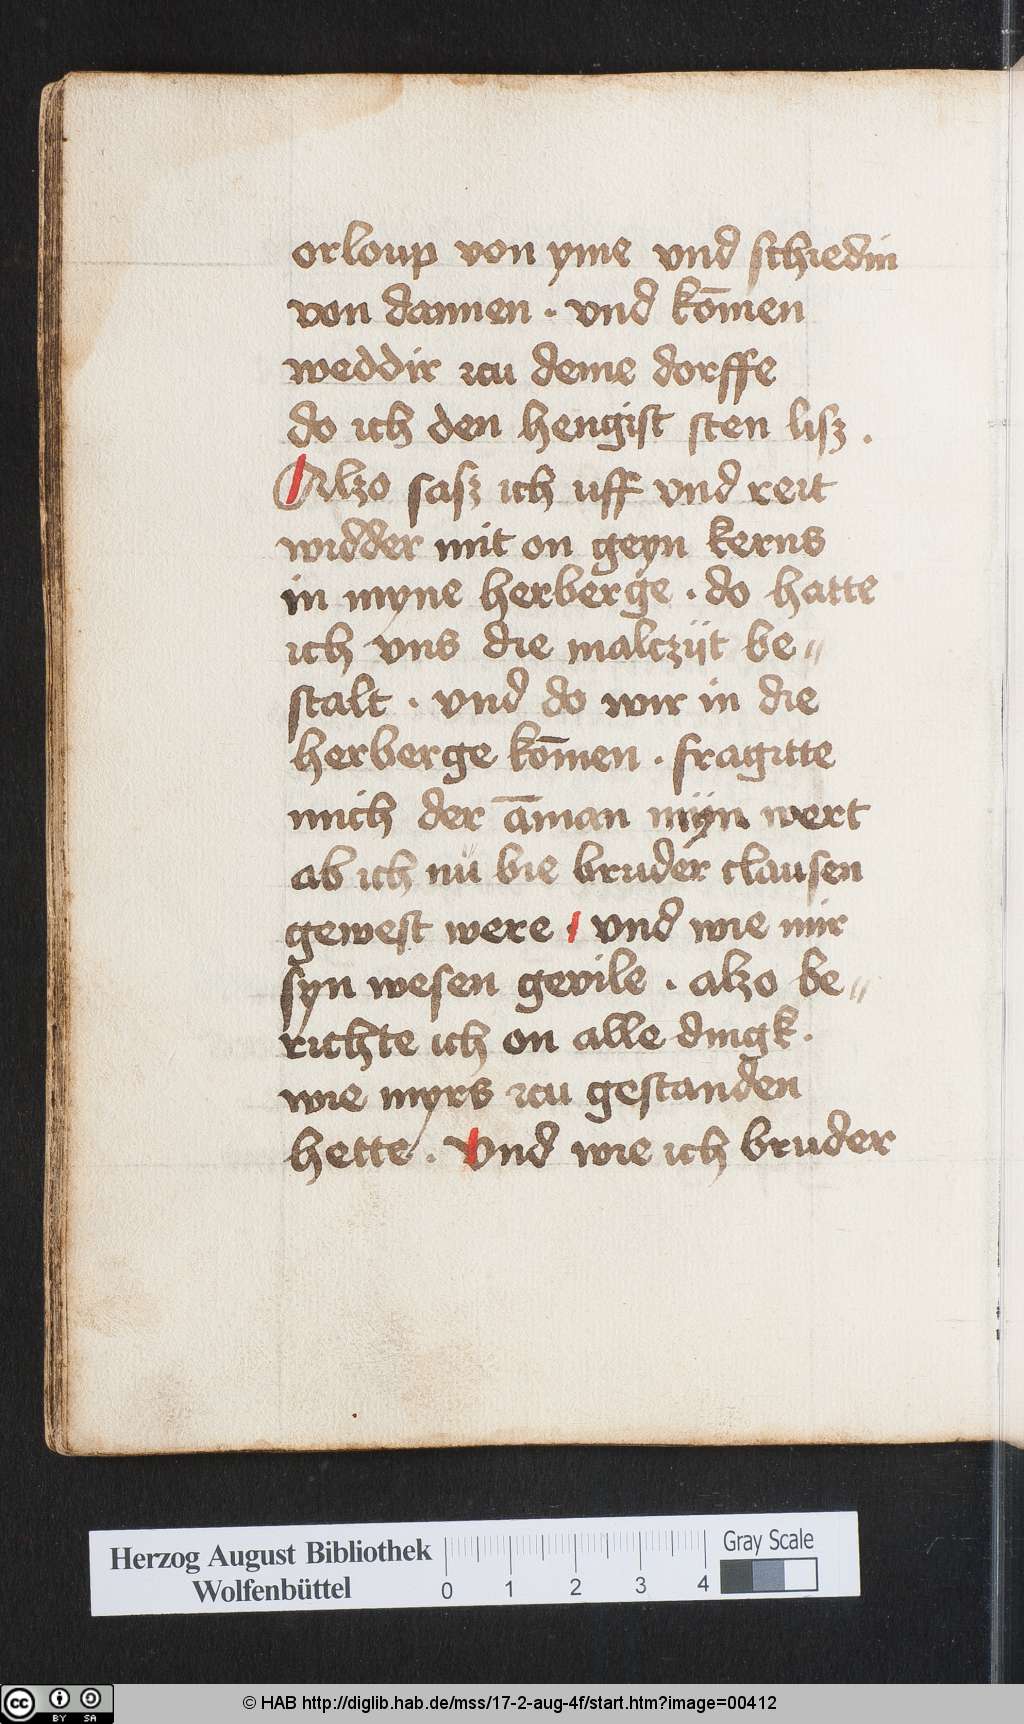 orloup von yme vnd schiedin
von dannen . vnd kōmen
weddir zcu deme dorffe
do ich den hengist sten lisz .
Alzo sasz ich uff vnd reit
widder mit on geyn kerns
in myne herberge . do hatte
ich vns die malczijt be〃
stalt . vnd do wir in die
herberge kōmen . fragitte
mich der āman mijn wert
ab ich nü bie bruder clausen
gewest were . vnd wie mir
syn wesen gevile . alzo be〃
richte ich on alle dingk .
wie myrs zcu gestanden
hette . Vnd wie ich bruder
Herzog August Bibliothek
Wolfenbüttel
0 1 2 3 4
Gray Scale
cc BY SA
© HAB http://diglib.hab.de/mss/17-2-aug-4f/start.htm?image=00412